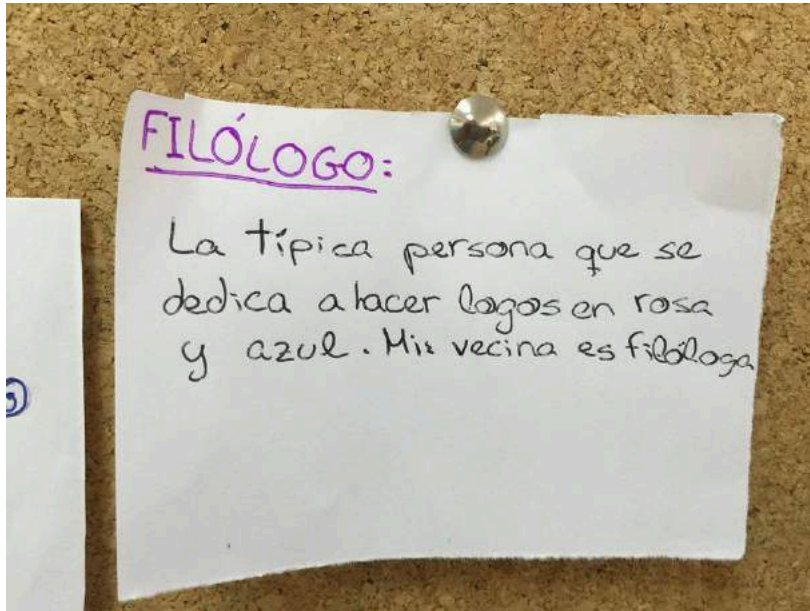 FILÓLOGO:
La típica persona que se
dedica a hacer logos en rosa
y azul. Mi vecina es filóloga